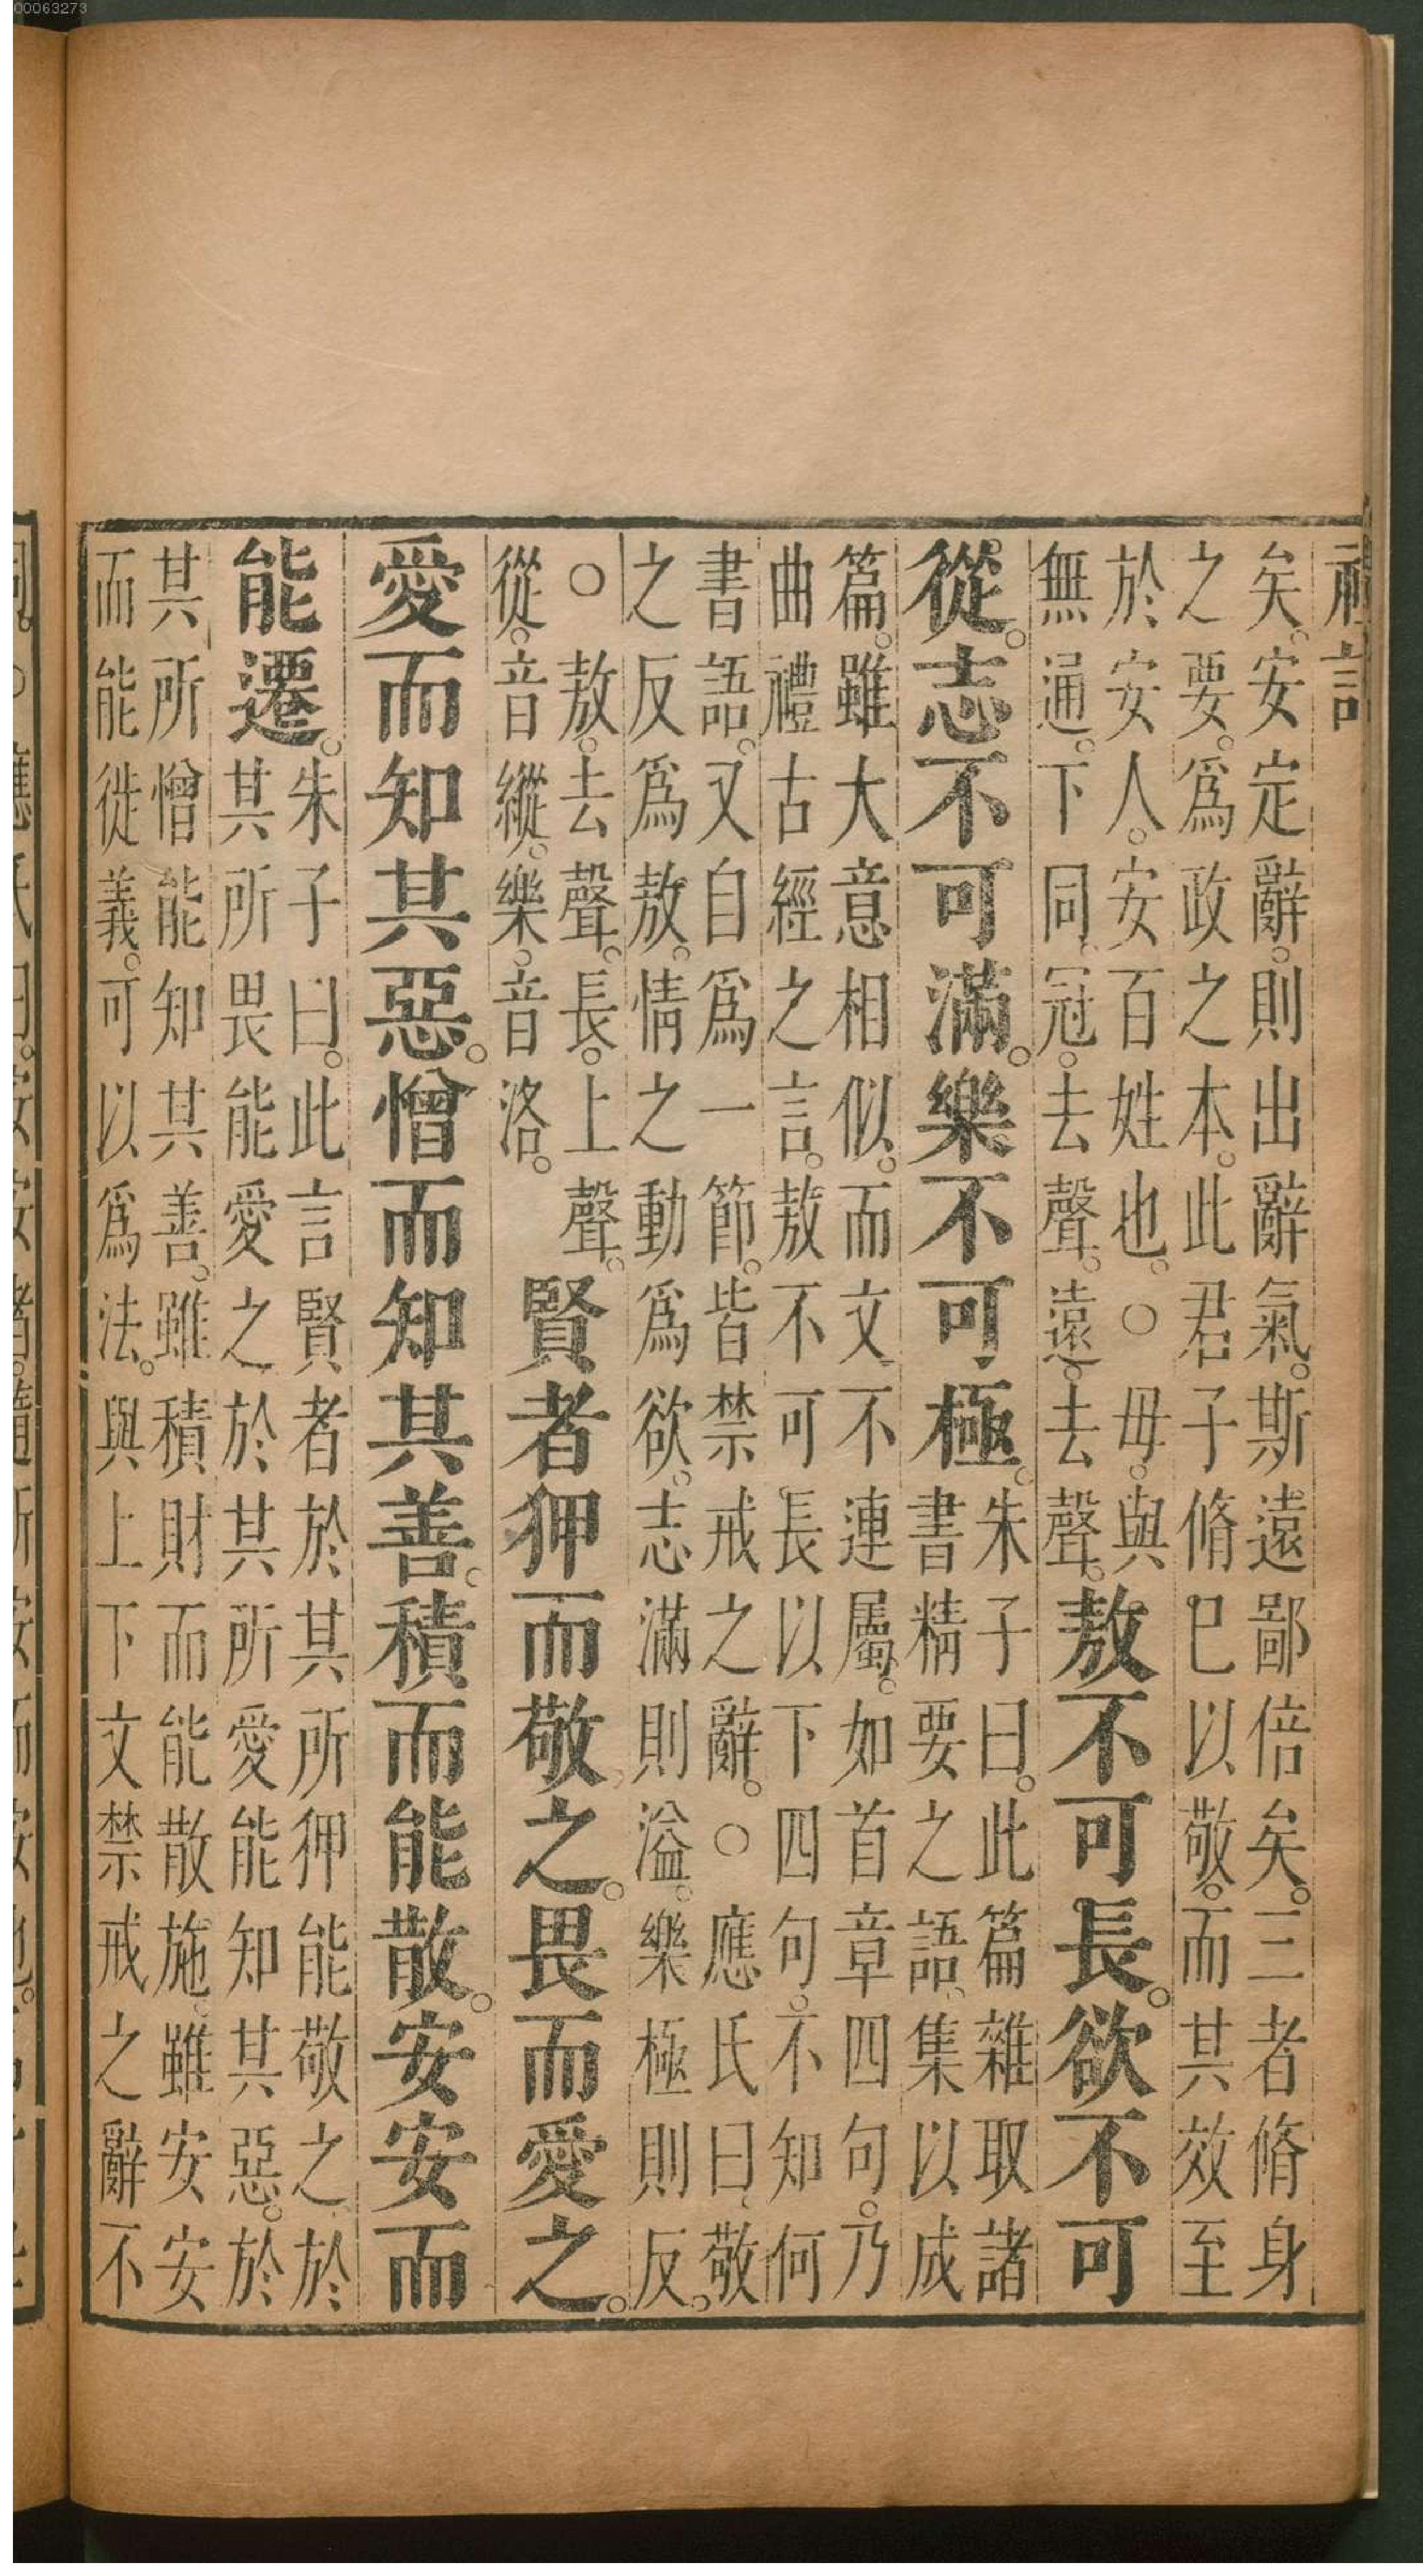 00063273
禮記
矣。安定辭。則出辭氣。斯遠鄙倍矣。三者脩身
之要。爲政之本。此君子脩己以敬。而其效至
於安人。安百姓也。○毋。與
無通。下同。冠。去聲。遠。去聲。
敖不可長。欲不可
從。志不可滿。樂不可極。
朱子曰。此篇雜取諸
書精要之語。集以成
篇。雖大意相似。而文不連屬。如首章四句。乃
曲禮古經之言。敖不可長以下四句。不知何
書語。又自爲一節。皆禁戒之辭。○應氏曰。敬
之反爲敖。情之動爲欲。志滿則溢。樂極則反。
○敖。去聲。長。上聲。
從。音縱。樂。音洛。
賢者狎而敬之。畏而愛之。
愛而知其惡。憎而知其善。積而能散。安安而
能遷。
朱子曰。此言賢者於其所狎能敬之。於
其所畏能愛之於其所愛能知其惡。於
其所憎能知其善。雖積財而能散施。雖安安
而能徙義。可以爲法。與上下文禁戒之辭不